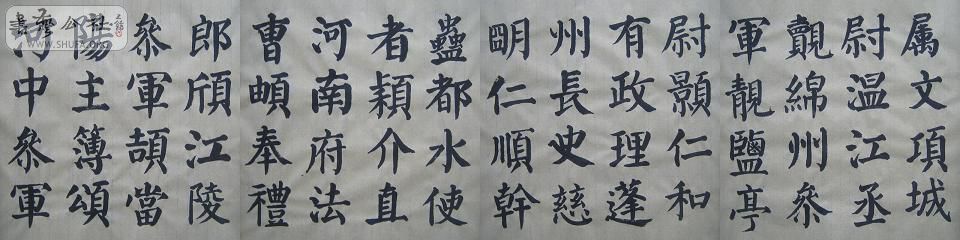 属文項城
尉温江丞
覿綿州參
軍靚鹽亭
尉顥仁和
有政理蓬
州長史慈
明仁順幹
蠱都水使
者穎介直
河南府法
曹頔奉禮
郎頎江陵
參軍頡當
陽主簿頌
河中參軍
書藝公社
WWW.SHUFA.ORG